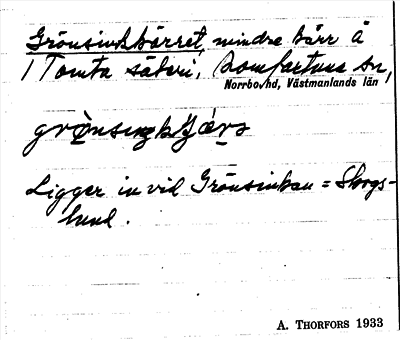 Grönsinkkärret, mindre kärr å
Tomta säteri, Romfartuna sn,
Norrbo hd, Västmanlands län
Ligger in vid Grönsinkan = Skogs-
lund.
A. THORFORS 1933